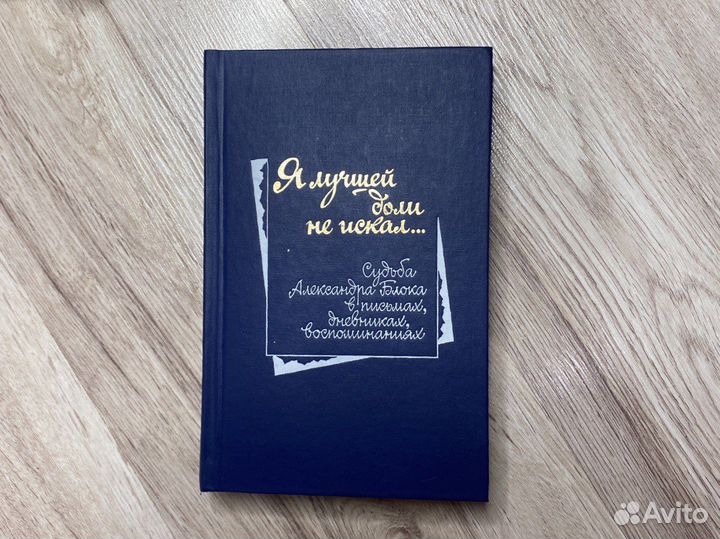 Я лучшей
доли
не искал...
Судьба
Александра Блока
в письмах,
дневниках,
воспоминаниях
Avito